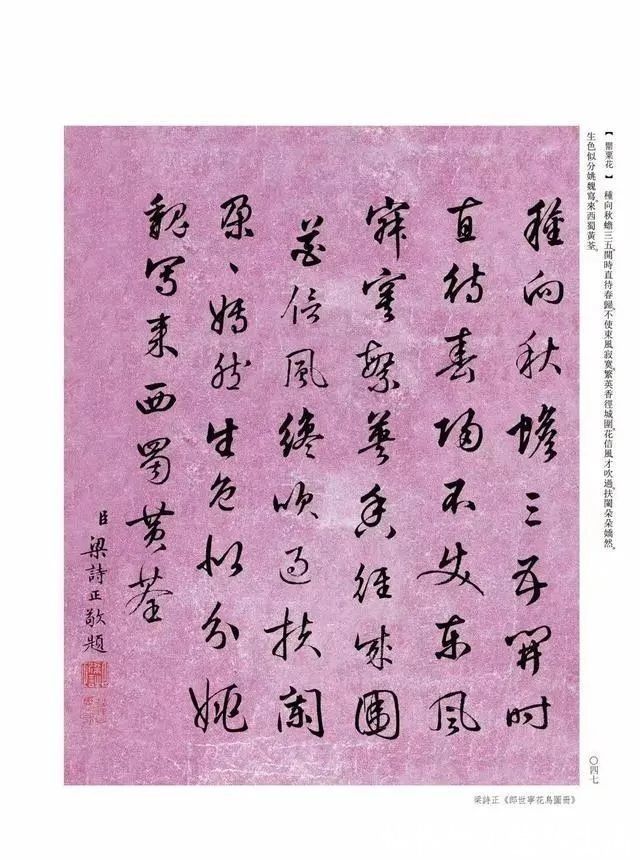 【罌粟花】 種向秋蟾三五開時直待春歸。不使東風寂寞。繁英香徑城圍。花信風才吹過。扶闌朵朵嬌然。
生色似分姚魏寫。來西蜀黃荃。
種向秋蟾三五開時
直待春歸不使東風
寂寞繁英香徑成圍
花信風纔吹過扶闌
朵〻嫣然生色似分姚
魏寫來西蜀黃荃
臣梁詩正敬題
〇四七
梁詩正《郎世寧花鳥圖冊》